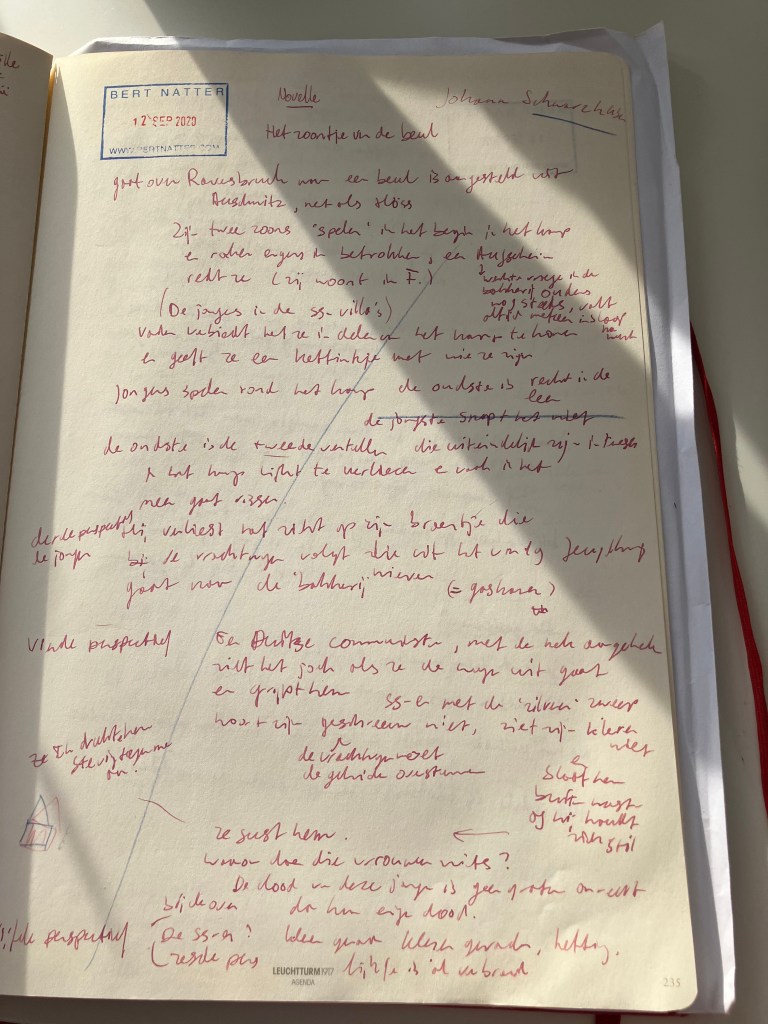 BERT NATTER
12 SEP 2020
WWW.BERTNATTER.COM
Novelle
Johana
Het zoontje van de beul
gaat over Ravensbruck waar een beul is aangesteld uit
Auschwitz, net als Höss
Zijn twee zoons 'spelen' in het begin in het kamp
en raken ergens in betrokken, een Aufseherin
redt ze (zij woont in F.)
(De jongens in de SS-villa's)
vader verbiedt het ze in delen van het kamp te komen
en geeft ze een kettinkje met wie ze zijn
Jongens spelen rond het kamp de oudste is recht in de
leer
de jongste snapt het niet
de oudste is de tweede verteller die uiteindelijk zijn
het kamp lijkt te verliezen en vader in het
meer gaat vissen.
derde perspectief
de jongen
Hij verliest het zicht op zijn broertje die
de vrachtwagen volgt die uit het
gaat naar de 'bakkerij' (= gaskamer)
vierde perspectief
Een Duitse communiste, met de nek
ziet het joch als ze de wagen uit gaat
en grijpt hem
SS-er met de 'zilveren' zweep
hoort zijn geschreeuw niet, ziet zijn kleren
niet
de vrachtwagen moet
de geluiden overstemmen
ze drukt hem
stevig tegen me
aan.
slaat hem
of hij houdt
zich stil
ze sust hem.
waarom doen die vrouwen niets?
De dood van deze jongen is geen groter onrecht
dan hun eigen dood.
vijfde perspectief
De SS-er?
zesde pers
kleren gevonden, ketting.
lijkje is al verbrand
LEUCHTTURM1917
AGENDA
235